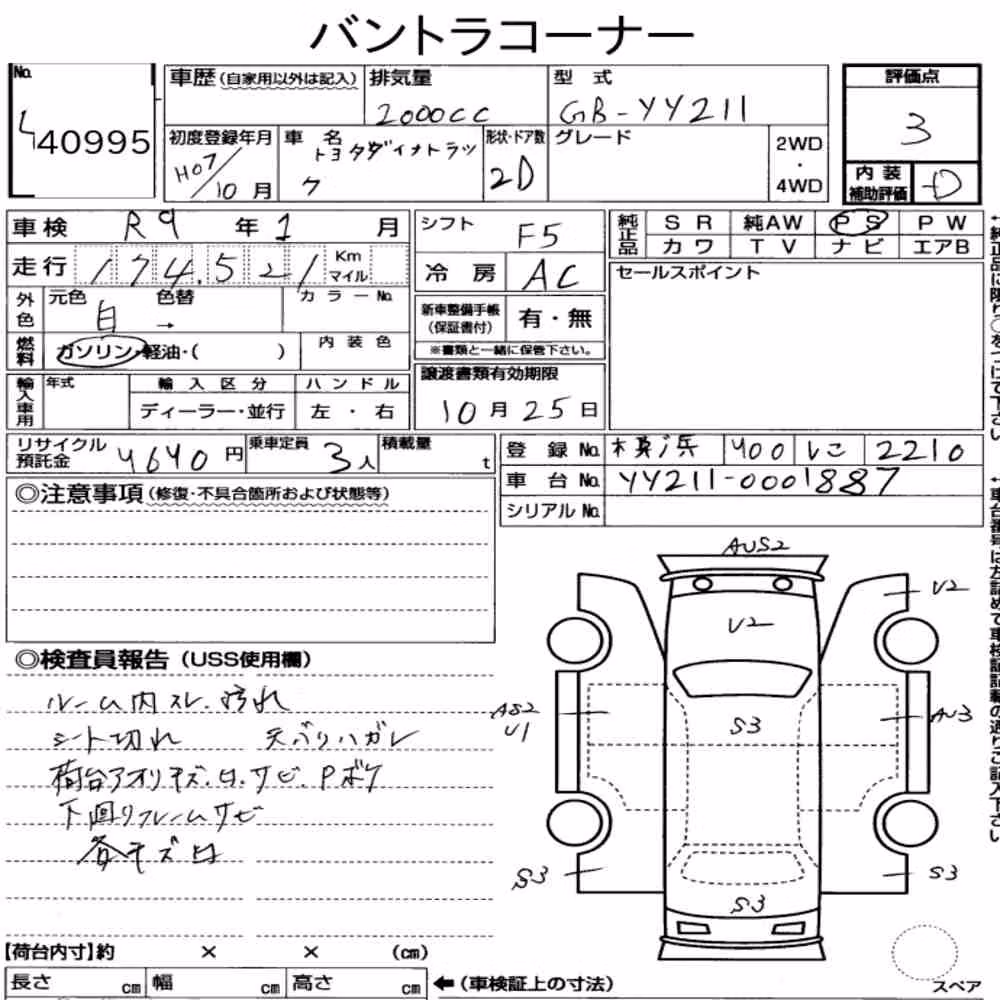 バントラコーナー
No. 40995
車歴 (自家用以外は記入)
排気量 2000CC
型式 GB-YY211
評価点 3
初度登録年月 H07/10月
車名 トヨタダイナトラック
形状・ドア数 2D
グレード
2WD・4WD
内装補助評価 D
車検 R9年1月
シフト F5
純正品 SR 純AW PS PW
カワ TV ナビ エアB
走行 174,521 Km マイル
冷房 AC
セールスポイント
外色 元色 白 色替 → カラーNo.
新車整備手帳(保証書付) 有・無
※書類と一緒に保管下さい。
燃料 ガソリン・軽油・( ) 内装色
譲渡書類有効期限
10月25日
輸入車用 年式 輸入区分 ハンドル
ディーラー・並行 左・右
リサイクル預託金 4640円 乗車定員 3人 積載量 t
登録No. 400 2210
車台No. YY211-0001887
シリアルNo.
◎注意事項(修復・不具合箇所および状態等)
◎検査員報告(USS使用欄)
ルーム内スレ.汚れ
シート切れ 天バリハガレ
荷台アオリキズ.凹.サビ.Pボケ
下回りフレームサビ
各キズ凹
AUS2
U2
U2
S3
AS2
U1
AU3
S3
S3
S3
スペア
【荷台内寸】約 × × (cm)
長さ cm 幅 cm 高さ cm ←(車検証上の寸法)
↑純正品に限り○をつけて下さい
↑車台番号は左詰めで車検証記載の通りご記入下さい